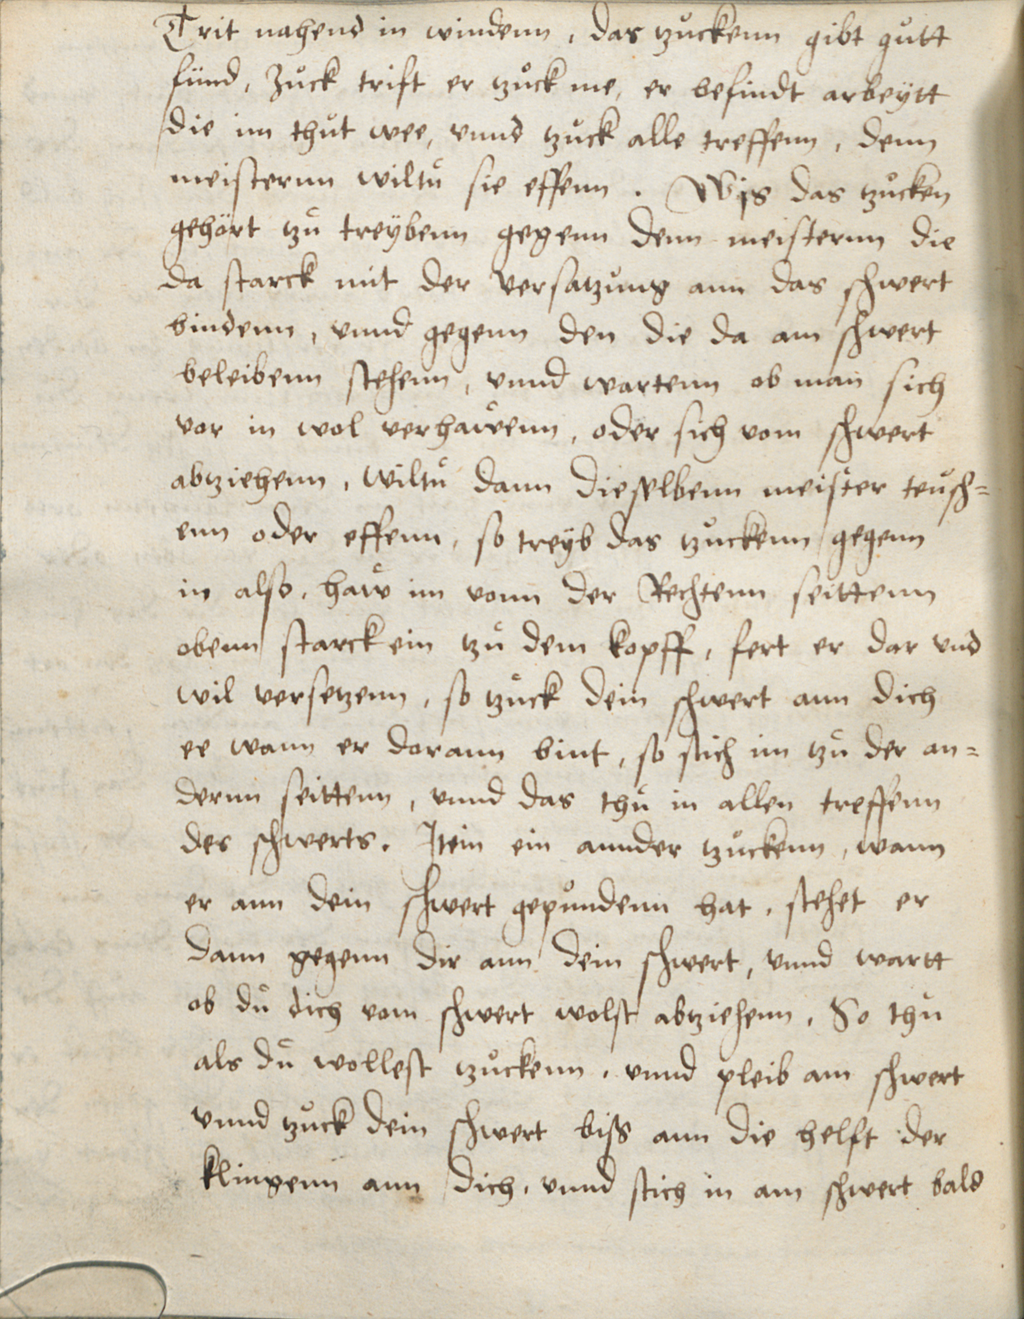 Trit nahend in windenn, das tzuckenn gibt gůtt
fünd, Zůck trift er tzůck me, er befindt arbeÿtt
die im thůt wee, vnnd tzůck alle treffenn, denn
meisternn wiltů sie effenn. Wis das tzůcken
gehört tzů treÿbenn gegenn denn meisternn die
da starck mit der versatzůng ann das schwert
bindenn, vnnd gegenn den die da am schwert
beleibenn stehenn, vnnd wartenn ob man sich
vor in wol verhaẘenn, oder sich vom schwert
abziehenn, wiltů dann dieselbenn meister teůsch=
enn oder effenn, so treÿb das tzůckenn gegenn
in also, haẘ im vonn der Rechtenn seittenn
obenn starck ein tzů dem kopff, fert er dar vnd
wil versetzenn, so tzůck dein schwert ann dich
ee wann er darann bint, so stich im tzů der an=
dernn seittenn, vnnd das thů in allen treffenn
des schwerts. Item ein annder tzůckenn, wann
er ann dein schwert gepůndenn hat, stehet er
dann gegenn dir ann dein schwert, vnnd wartt
ob dů dich vom schwert wolst abziehenn, So thů
als dů wollest tzůckenn, vnnd pleib am schwert
vnnd tzůck dein schwert biss ann die helft der
klingenn ann dich, vnnd stich in am schwert bald